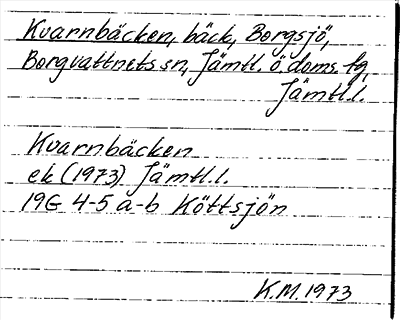 Kvarnbäcken, bäck, Borgsjö,
Borgvattnets sn, Jämtl. ö. doms. tg,
Jämtl. l.
Kvarnbäcken
ek (1973) Jämtl. l.
19G 4-5 a-b Köttsjön
K.M. 1973